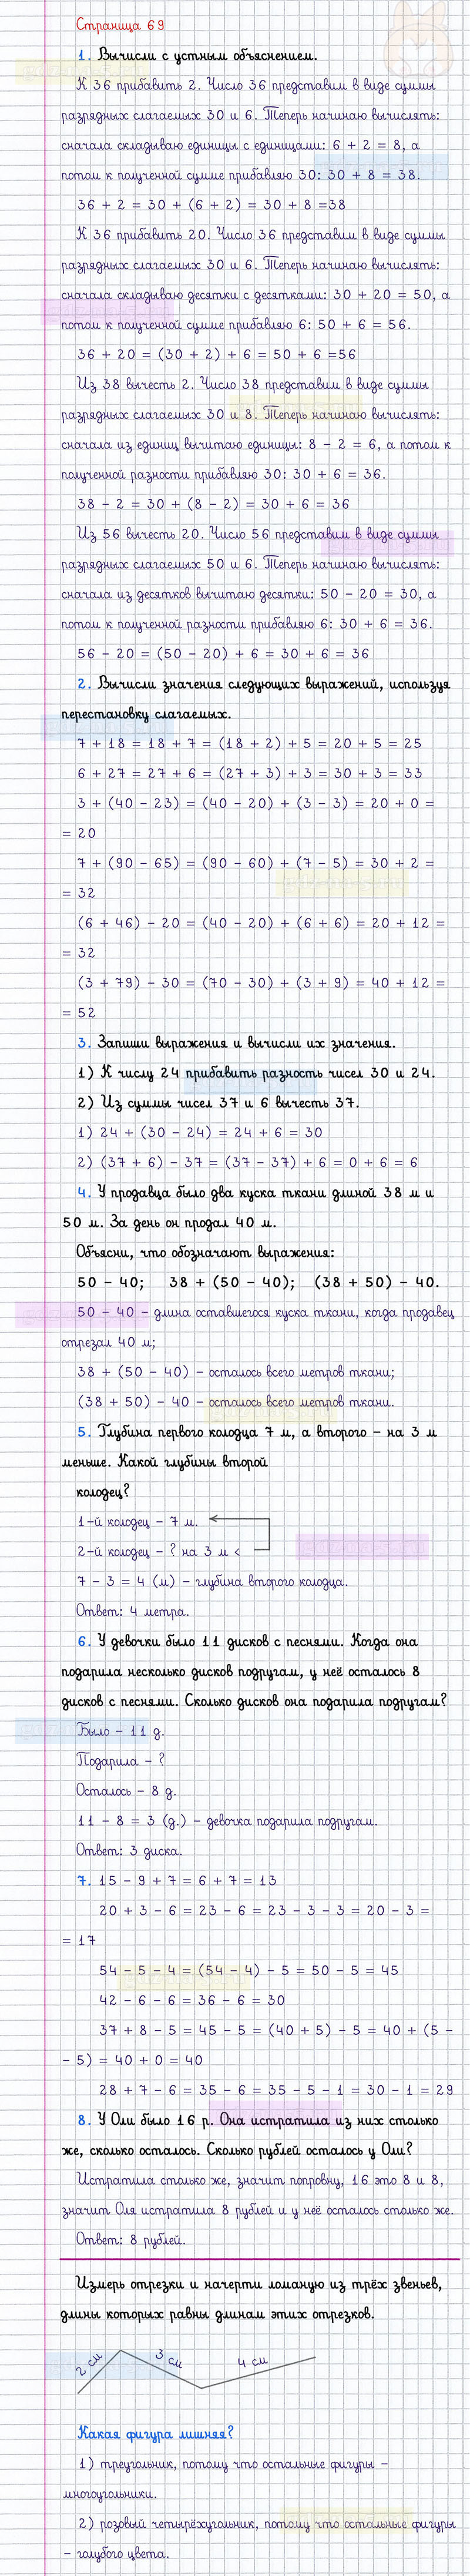 Страница 69
1. Вычисли с устным объяснением.
К 36 прибавить 2. Число 36 представим в виде суммы
разрядных слагаемых 30 и 6. Теперь начинаю вычислять:
сначала складываю единицы с единицами: 6 + 2 = 8, а
потом к полученной сумме прибавляю 30: 30 + 8 = 38.
36 + 2 = 30 + (6 + 2) = 30 + 8 =38
К 36 прибавить 20. Число 36 представим в виде суммы
разрядных слагаемых 30 и 6. Теперь начинаю вычислять:
сначала складываю десятки с десятками: 30 + 20 = 50, а
потом к полученной сумме прибавляю 6: 50 + 6 = 56.
36 + 20 = (30 + 2) + 6 = 50 + 6 =56
Из 38 вычесть 2. Число 38 представим в виде суммы
разрядных слагаемых 30 и 8. Теперь начинаю вычислять:
сначала из единиц вычитаю единицы: 8 – 2 = 6, а потом к
полученной разности прибавляю 30: 30 + 6 = 36.
38 – 2 = 30 + (8 – 2) = 30 + 6 = 36
Из 56 вычесть 20. Число 56 представим в виде суммы
разрядных слагаемых 50 и 6. Теперь начинаю вычислять:
сначала из десятков вычитаю десятки: 50 – 20 = 30, а
потом к полученной разности прибавляю 6: 30 + 6 = 36.
56 – 20 = (50 – 20) + 6 = 30 + 6 = 36
2. Вычисли значения следующих выражений, используя
перестановку слагаемых.
7 + 18 = 18 + 7 = (18 + 2) + 5 = 20 + 5 = 25
6 + 27 = 27 + 6 = (27 + 3) + 3 = 30 + 3 = 33
3 + (40 – 23) = (40 – 20) + (3 – 3) = 20 + 0 =
= 20
7 + (90 – 65) = (90 – 60) + (7 – 5) = 30 + 2 =
= 32
(6 + 46) – 20 = (40 – 20) + (6 + 6) = 20 + 12 =
= 32
(3 + 79) – 30 = (70 – 30) + (3 + 9) = 40 + 12 =
= 52
3. Запиши выражения и вычисли их значения.
1) К числу 24 прибавить разность чисел 30 и 24.
2) Из суммы чисел 37 и 6 вычесть 37.
1) 24 + (30 – 24) = 24 + 6 = 30
2) (37 + 6) – 37 = (37 – 37) + 6 = 0 + 6 = 6
4. У продавца было два куска ткани длиной 38 м и
50 м. За день он продал 40 м.
Объясни, что обозначают выражения:
50 – 40; 38 + (50 – 40); (38 + 50) – 40.
50 – 40 – длина оставшегося куска ткани, когда продавец
отрезал 40 м;
38 + (50 – 40) – осталось всего метров ткани;
(38 + 50) – 40 – осталось всего метров ткани.
5. Глубина первого колодца 7 м, а второго – на 3 м
меньше. Какой глубины второй
колодец?
1-й колодец – 7 м.
2-й колодец – ? на 3 м <
7 – 3 = 4 (м) – глубина второго колодца.
Ответ: 4 метра.
6. У девочки было 11 дисков с песнями. Когда она
подарила несколько дисков подругам, у неё осталось 8
дисков с песнями. Сколько дисков она подарила подругам?
Было – 11 д.
Подарила – ?
Осталось – 8 д.
11 – 8 = 3 (д.) – девочка подарила подругам.
Ответ: 3 диска.
7. 15 – 9 + 7 = 6 + 7 = 13
20 + 3 – 6 = 23 – 6 = 23 – 3 – 3 = 20 – 3 =
= 17
54 – 5 – 4 = (54 – 4) – 5 = 50 – 5 = 45
42 – 6 – 6 = 36 – 6 = 30
37 + 8 – 5 = 45 – 5 = (40 + 5) – 5 = 40 + (5 –
– 5) = 40 + 0 = 40
28 + 7 – 6 = 35 – 6 = 35 – 5 – 1 = 30 – 1 = 29
8. У Оли было 16 р. Она истратила из них столько
же, сколько осталось. Сколько рублей осталось у Оли?
Истратила столько же, значит поровну, 16 это 8 и 8,
значит Оля истратила 8 рублей и у неё осталось столько же.
Ответ: 8 рублей.
Измерь отрезки и начерти ломаную из трёх звеньев,
длины которых равны длинам этих отрезков.
2 см 3 см 4 см
Какая фигура лишняя?
1) треугольник, потому что остальные фигуры –
многоугольники.
2) розовый четырёхугольник, потому что остальные фигуры
– голубого цвета.